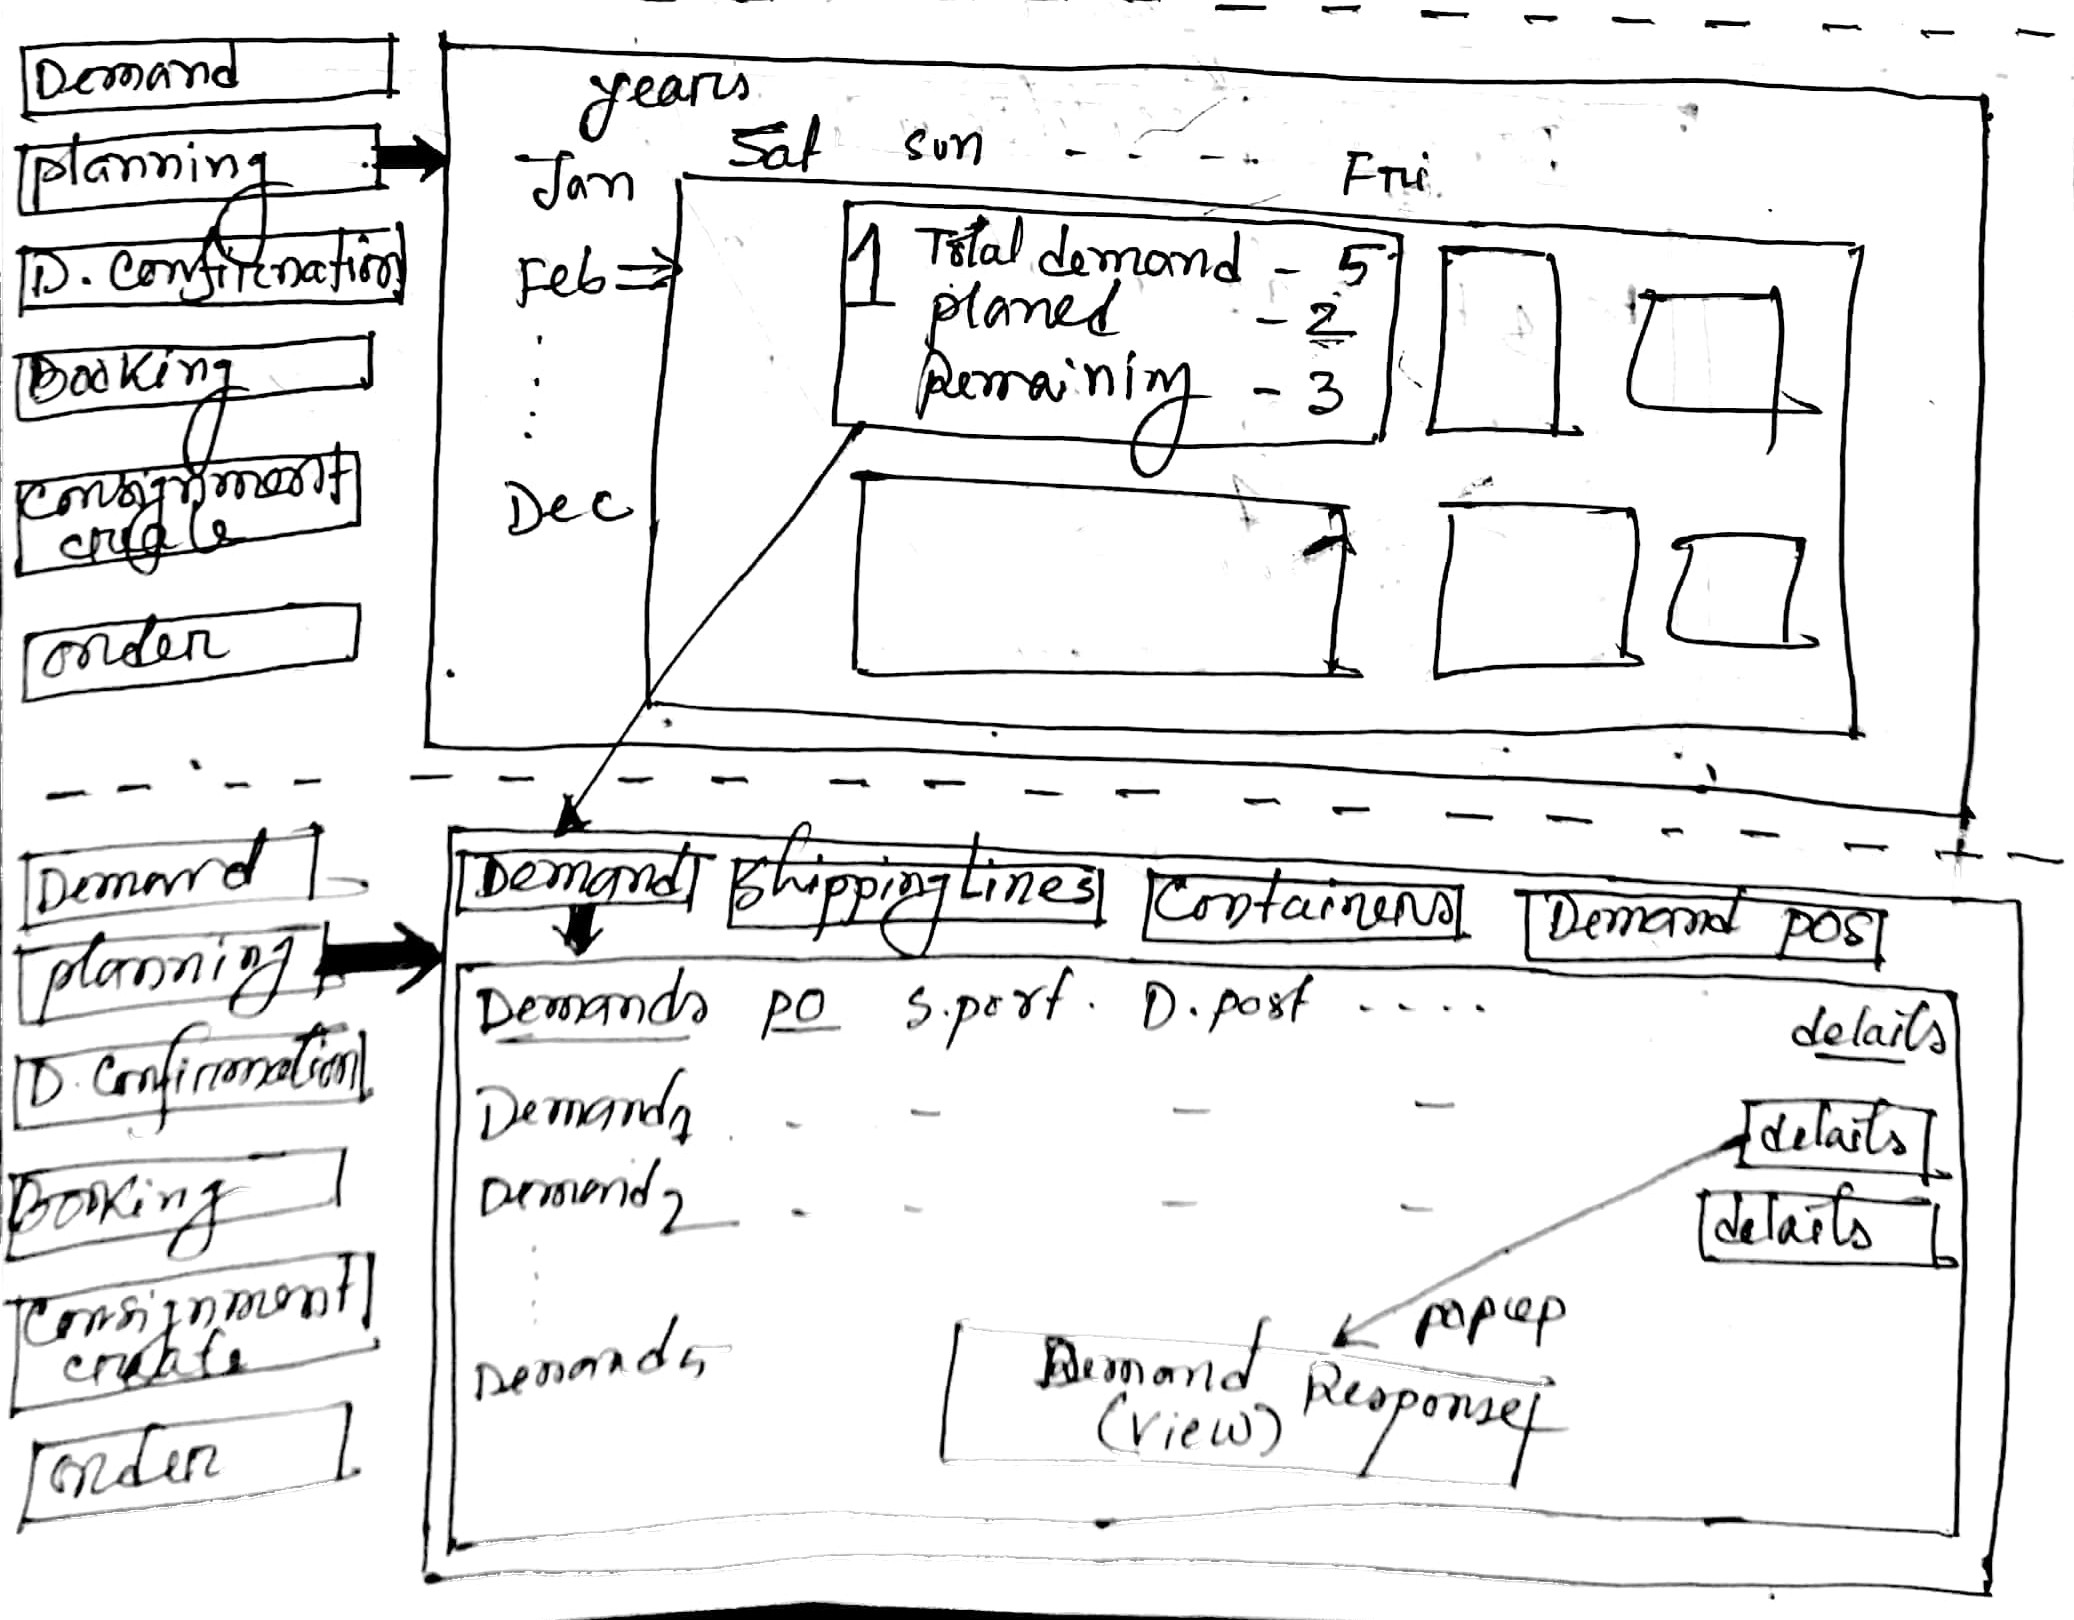 Demand
planning
D. Confirmation
Booking
Consignment
create
order
years
Sat sun - - - - Fri
Jan
Feb
Dec
1 Total demand - 5
planed - 2
Remaining - 3
Demand
planning
D. Confirmation
Booking
Consignment
create
order
Demand Shipping Lines Containers Demand POS
Demands PO S.port. D.port ..... details
Demand1 - - - - details
Demand2 - - - - details
Demand5
popup
Demand Response
(view)